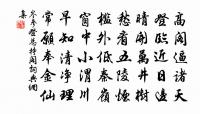 高閣逼諸天
登臨近日邊
晴開萬井樹
愁看五陵煙
檻外低秦嶺
窗中小渭川
早知清淨理
常願奉金仙
岑參登總持閣詞典網
集